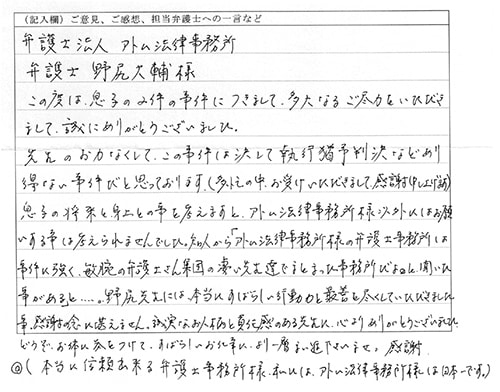 (記入欄) ご意見、ご感想、担当弁護士への一言など
弁護士法人 アトム法律事務所
弁護士 野尻大輔様
この度は、息子の 件の事件につきまして、多大なるご尽力をいただき
まして、誠にありがとうございました。
先生のお力なくして、この事件は決して執行猶予判決などあり
得ない事件だと思っております。(多忙の中、お受けいただきまして、感謝申し上げます)
息子の将来と身上の事を考えますと、アトム法律事務所様以外にはお願
いする事は考えられませんでした。知人から「アトム法律事務所様の弁護士事務所は
事件に強く、敏腕の弁護士さん集団の凄い先生達でまとまった事務所だよ。」と、聞いた
事があると……。野尻先生には、本当にすばらしい行動力と最善を尽くしていただきました
事、感謝の念に堪えません。誠実なお人柄と責任感のある先生に、心よりありがとうございました
どうぞ、お体に気をつけて、すばらしいお仕事に、より一層まい進下さいませ。感謝
◎(本当に信頼出来る弁護士事務所様。私には、アトム法律事務所様は日本一です。)